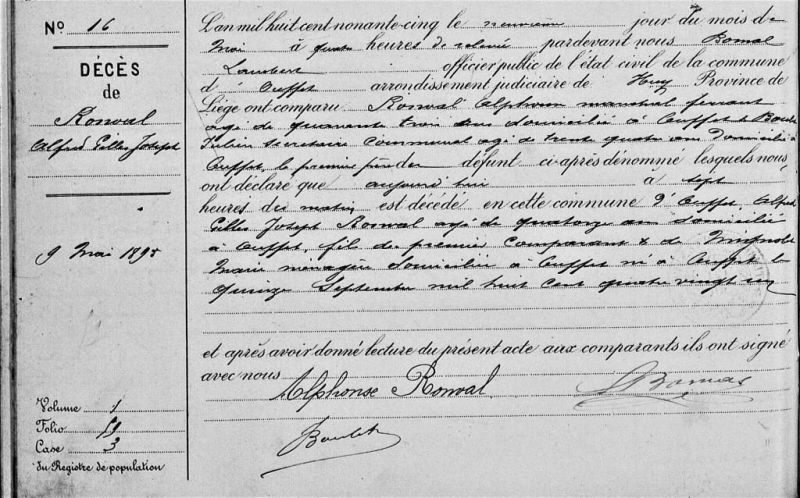 No 16
DÉCÈS
de
Ronval
Alfred Gilles Joseph
9 Mai 1895
Volume 1
Folio
Case 3
du Registre de population
L'an mil huit cent nonante-cinq le neuvième jour du mois de
Mai à quatre heures de relevée pardevant nous Bomal
Lambert officier public de l'état civil de la commune
d' Ouffet arrondissement judiciaire de Huy Province de
Liège ont comparu Ronval Alphonse maréchal ferrant
agé de quarante trois ans domicilié à Ouffet & Boulet
Julien secrétaire communal agé de trente quatre ans domicilié à
Ouffet, le premier père du défunt ci-après dénommé lesquels nous
ont déclaré que aujourd'hui à sept
heures du matin est décédé en cette commune d' Ouffet, Alfred
Gilles Joseph Ronval agé de quatorze ans domicilié
à Ouffet, fils du premier comparant & de
Marie ménagère domiciliée à Ouffet né à Ouffet le
quinze Septembre mil huit cent quatre vingt un
et après avoir donné lecture du présent acte aux comparants ils ont signé
avec nous
Alphonse Ronval
LBomal
Boulet